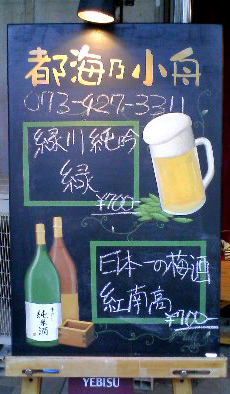 都海乃小舟
073-427-3311
緑川純吟
緑
¥700-
日本一の梅酒
紅南高
¥700-
純米酒
YEBISU